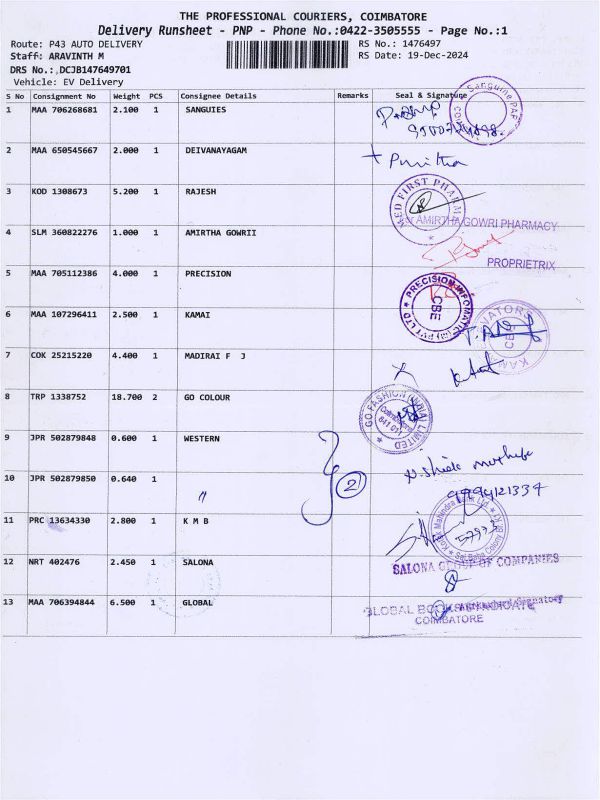 THE PROFESSIONAL COURIERS, COIMBATORE
Delivery Runsheet - PNP - Phone No.:0422-3505555 - Page No.:1
Route: P43 AUTO DELIVERY RS No.: 1476497
Staff: ARAVINTH M RS Date: 19-Dec-2024
DRS No.: DCJB147649701
Vehicle: EV Delivery
S No Consignment No Weight PCS Consignee Details Remarks Seal & Signature
1 MAA 706268681 2.100 1 SANGUIES
2 MAA 650545667 2.000 1 DEIVANAYAGAM
Punitha
3 KOD 1308673 5.200 1 RAJESH
MED FIRST PHARMA
AMIRTHA GOWRI PHARMACY
4 SLM 360822276 1.000 1 AMIRTHA GOWRII
PROPRIETRIX
5 MAA 705112386 4.000 1 PRECISION
PRECISION INFOMATIC (M) PVT LTD
CBE
6 MAA 107296411 2.500 1 KAMAI
7 COK 25215220 4.400 1 MADIRAI F J
8 TRP 1338752 18.700 2 GO COLOUR
GO FASHION (INDIA) LIMITED
9 JPR 502879848 0.600 1 WESTERN
10 JPR 502879850 0.640 1 〃
2
9994121334
11 PRC 13634330 2.800 1 K M B
12 NRT 402476 2.450 1 SALONA
SALONA GROUP OF COMPANIES
13 MAA 706394844 6.500 1 GLOBAL
GLOBAL BOOKS SYNDICATE
COIMBATORE